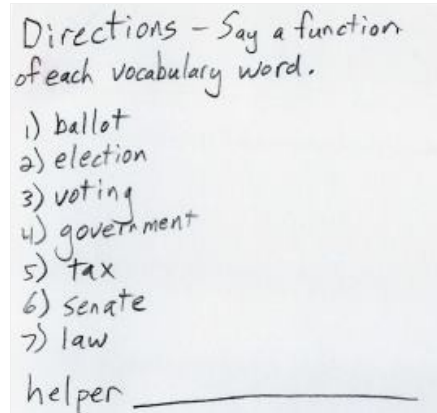 Directions - Say a function
of each vocabulary word.
1) ballot
2) election
3) voting
4) government
5) tax
6) senate
7) law
helper